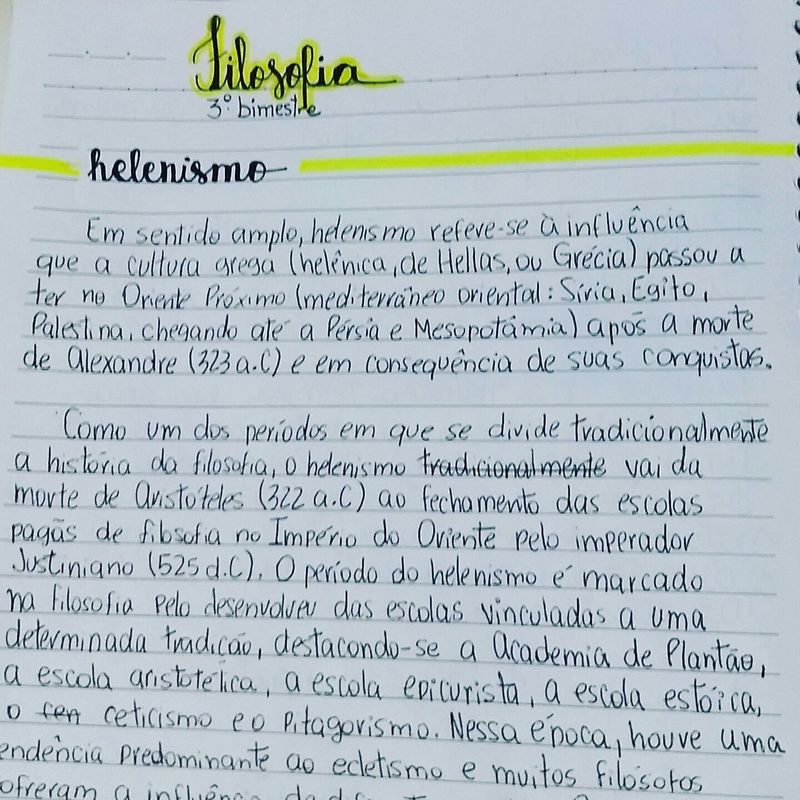 Filosofia
3º bimestre
helenismo
Em sentido amplo, helenismo refere-se à influência
que a cultura grega (helênica, de Hellas, ou Grécia) passou a
ter no Oriente Próximo (mediterrâneo oriental: Síria, Egito,
Palestina, chegando até a Pérsia e Mesopotâmia) após a morte
de Alexandre (323 a.C) e em consequência de suas conquistas.
Como um dos períodos em que se divide tradicionalmente
a história da filosofia, o helenismo tradicionalmente vai da
morte de Aristóteles (322 a.C) ao fechamento das escolas
pagãs de filosofia no Império do Oriente pelo imperador
Justiniano (525 d.C). O período do helenismo é marcado
na filosofia pelo desenvolver das escolas vinculadas a uma
determinada tradição, destacando-se a Academia de Plantão,
a escola aristotélica, a escola epicurista, a escola estóica,
o cen ceticismo e o Pitagorismo. Nessa época, houve uma
endência predominante ao ecletismo e muitos filósofos
ofreram a influência